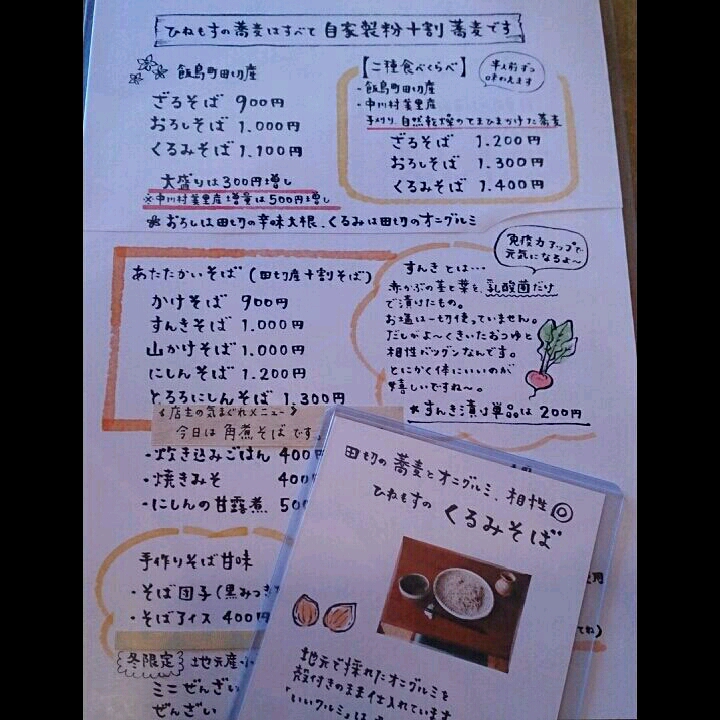 ひねもすの蕎麦はすべて 自家製粉十割蕎麦です
飯島町田切産
ざるそば 900円
おろしそば 1.000円
くるみそば 1.100円
大盛りは300円増し
※中川村葉里産増量は500円増し
おろしは田切の辛味大根、くるみは田切のオニグルミ
【二種食べくらべ】
半人前ずつ
味わえます
・飯島町田切産
・中川村葉里産
手刈り、自然乾燥のてまひまかけた蕎麦
ざるそば 1.200円
おろしそば 1.300円
くるみそば 1.400円
あたたかいそば (田切産十割そば)
かけそば 900円
すんきそば 1.000円
山かけそば 1.000円
にしんそば 1.200円
とろろにしんそば 1.300円
《店主の気まぐれメニュー》
今日は 角煮そば です。
・炊き込みごはん 400円
・焼きみそ 400
・にしんの甘露煮 50
免疫力アップで
元気になるよ〜
すんきとは…
赤かぶの茎と葉を、乳酸菌だけ
で漬けたもの。
お塩は一切使っていません。
だしがよ〜くきいたおつゆと
相性バツグンなんです。
とにかく体にいいのが
嬉しいですね〜。
*すんき漬け単品は200円
手作りそば甘味
・そば団子(黒みつき
・そばアイス 400円
冬限定 地元産
ミニぜんざい
ぜんざい
田切の蕎麦とオニグルミ、相性◎
ひねもすの くるみそば
地元で採れたオニグルミを
殻付きのまま仕入れています
「いいグルミ」は